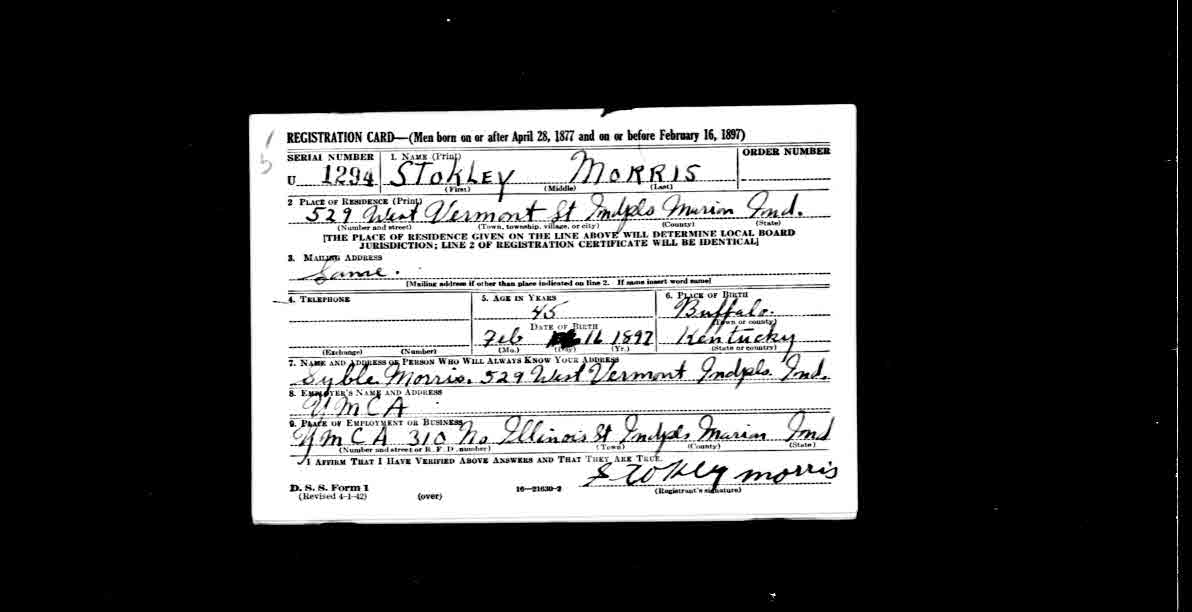 REGISTRATION CARD—(Men born on or after April 28, 1877 and on or before February 16, 1897)
SERIAL NUMBER 1. NAME (Print) ORDER NUMBER
U 1294 STOKLEY MORRIS
(First) (Middle) (Last)
2 PLACE OF RESIDENCE (Print)
529 West Vermont St Indpls Marion Ind.
(Number and street) (Town, township, village, or city) (County) (State)
[THE PLACE OF RESIDENCE GIVEN ON THE LINE ABOVE WILL DETERMINE LOCAL BOARD
JURISDICTION; LINE 2 OF REGISTRATION CERTIFICATE WILL BE IDENTICAL]
3. MAILING ADDRESS
Same.
[Mailing address if other than place indicated on line 2. If same insert word same]
4. TELEPHONE 5. AGE IN YEARS 6. PLACE OF BIRTH
45 Buffalo.
(Town or county)
DATE OF BIRTH
Feb 16 1897 Kentucky
(Exchange) (Number) (Mo.) (Day) (Yr.) (State or country)
7. NAME AND ADDRESS OF PERSON WHO WILL ALWAYS KNOW YOUR ADDRESS
Syble Morris. 529 West Vermont Indpls. Ind.
8. EMPLOYER'S NAME AND ADDRESS
YMCA
9. PLACE OF EMPLOYMENT OR BUSINESS
YMCA 310 No Illinois St Indpls Marion Ind
(Number and street or R. F. D. number) (Town) (County) (State)
I AFFIRM THAT I HAVE VERIFIED ABOVE ANSWERS AND THAT THEY ARE TRUE.
Stokley morris
D. S. S. Form 1
(Revised 4-1-42) (over) 16—21630-2 (Registrant's signature)